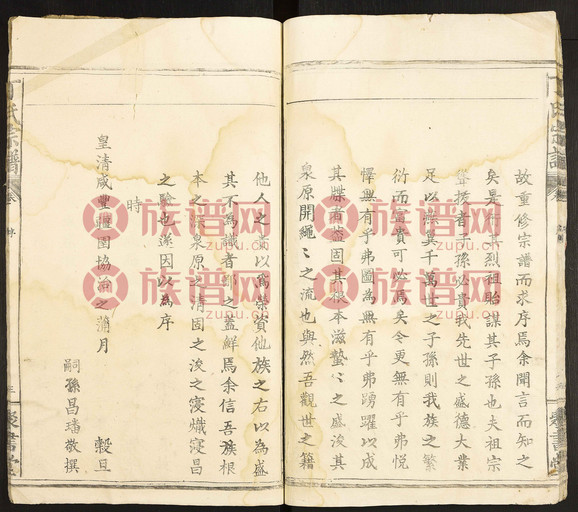 故重修宗譜而求序焉余聞言而知之
矣是行其烈祖胎謀其子孫也夫祖宗
聲援者王孫必貴我先世之盛德大業
足以滋冀千萬世之子孫則我族之繁
衍而富貴可必焉矣今更無有乎弗悅
懌無有乎弗圖為無有乎弗踴躍以成
其牒者蓋固其根本滋蟄〻之盛浚其
泉原開繩〻之流也與然吾觀世之籍
他人之以為榮賓他族之右以為盛
其不為檥者鄙之蓋鮮焉余信吾族根
本之深泉原之清固之浚之寖熾寖昌
之驗也遂因以為序
時
皇清咸豐疆圉協洽之蒲月
穀旦
嗣孫昌璠敬撰
丁氏宗譜
卷
序
聚書堂
族谱网
zupu.cn